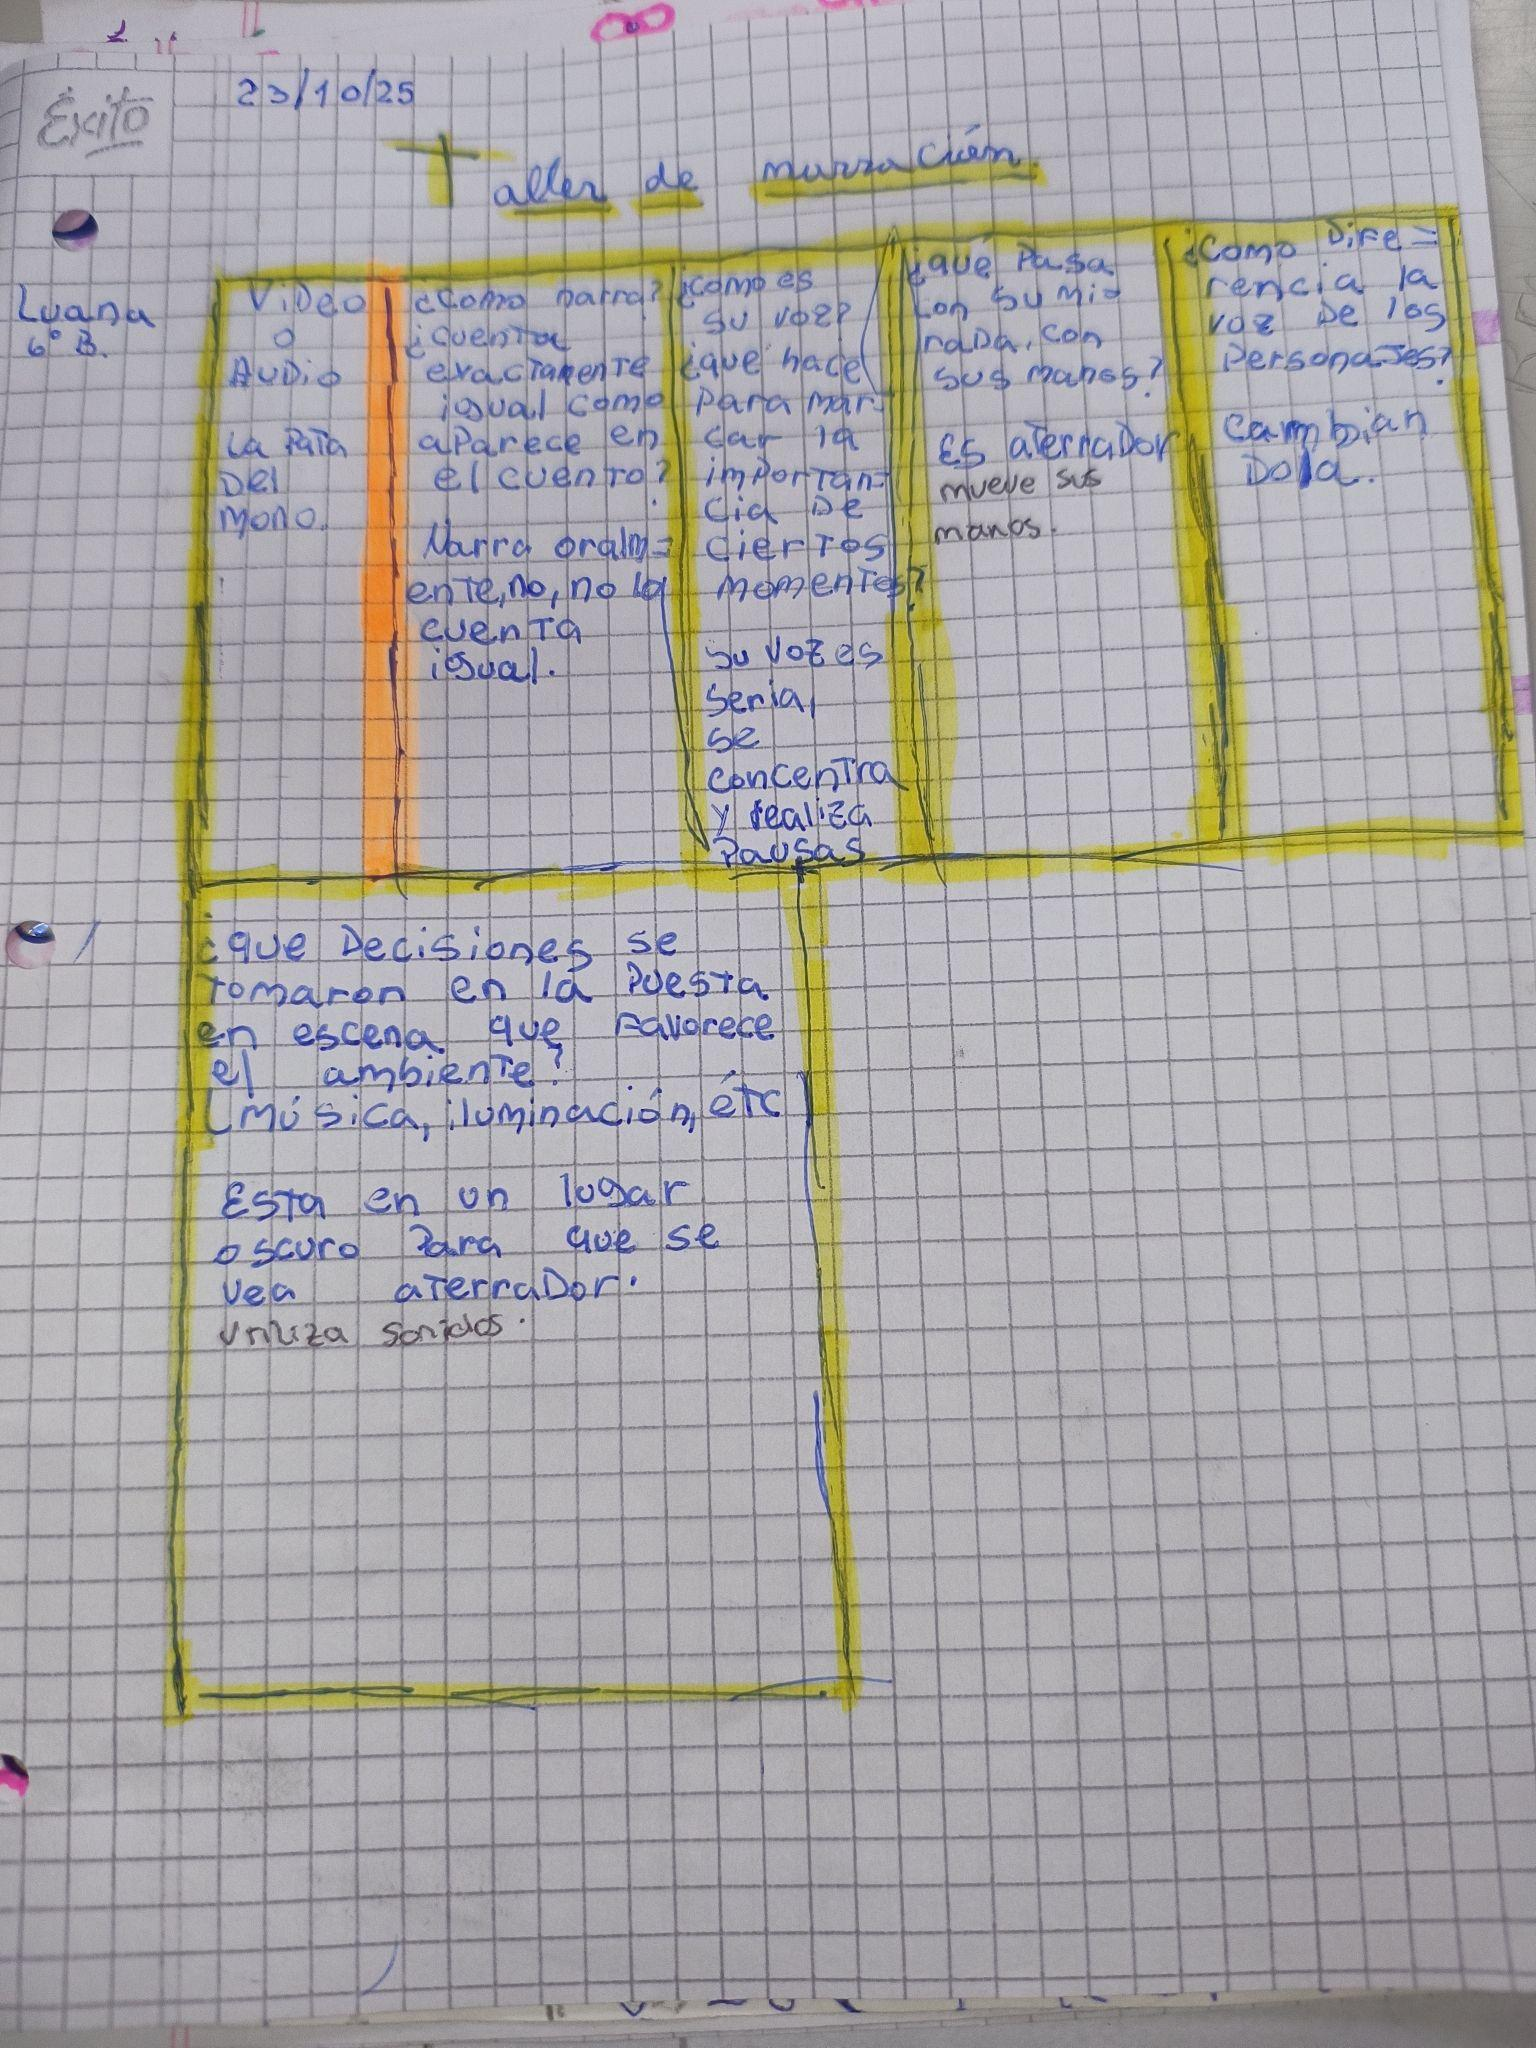 Éxito
23/10/25
Taller de narración.
Luana
6° B.
Video
o
Audio
La Pata
Del
mono.
¿Como narra?
¿cuenta
exactamente
igual como
aparece en
el cuento?
Narra oralm=
ente, no, no la
cuenta
igual.
¿como es
su voz?
¿que hace
para mar-
car la
importan-
cia De
ciertos
momentos?
su voz es
seria,
se
concentra
y realiza
Pausas
¿qué Pasa
con su mi=
rada, con
sus manos?
Es aterrador
mueve sus
manos.
¿Como Dife=
rencia la
voz De los
Personajes?
cambian
Dola.
¿que Decisiones se
tomaron en la Puesta
en escena que favorece
el ambiente?
(música, iluminación, étc)
Esta en un lugar
oscuro Para que se
vea aterrador.
utiliza sonidos.